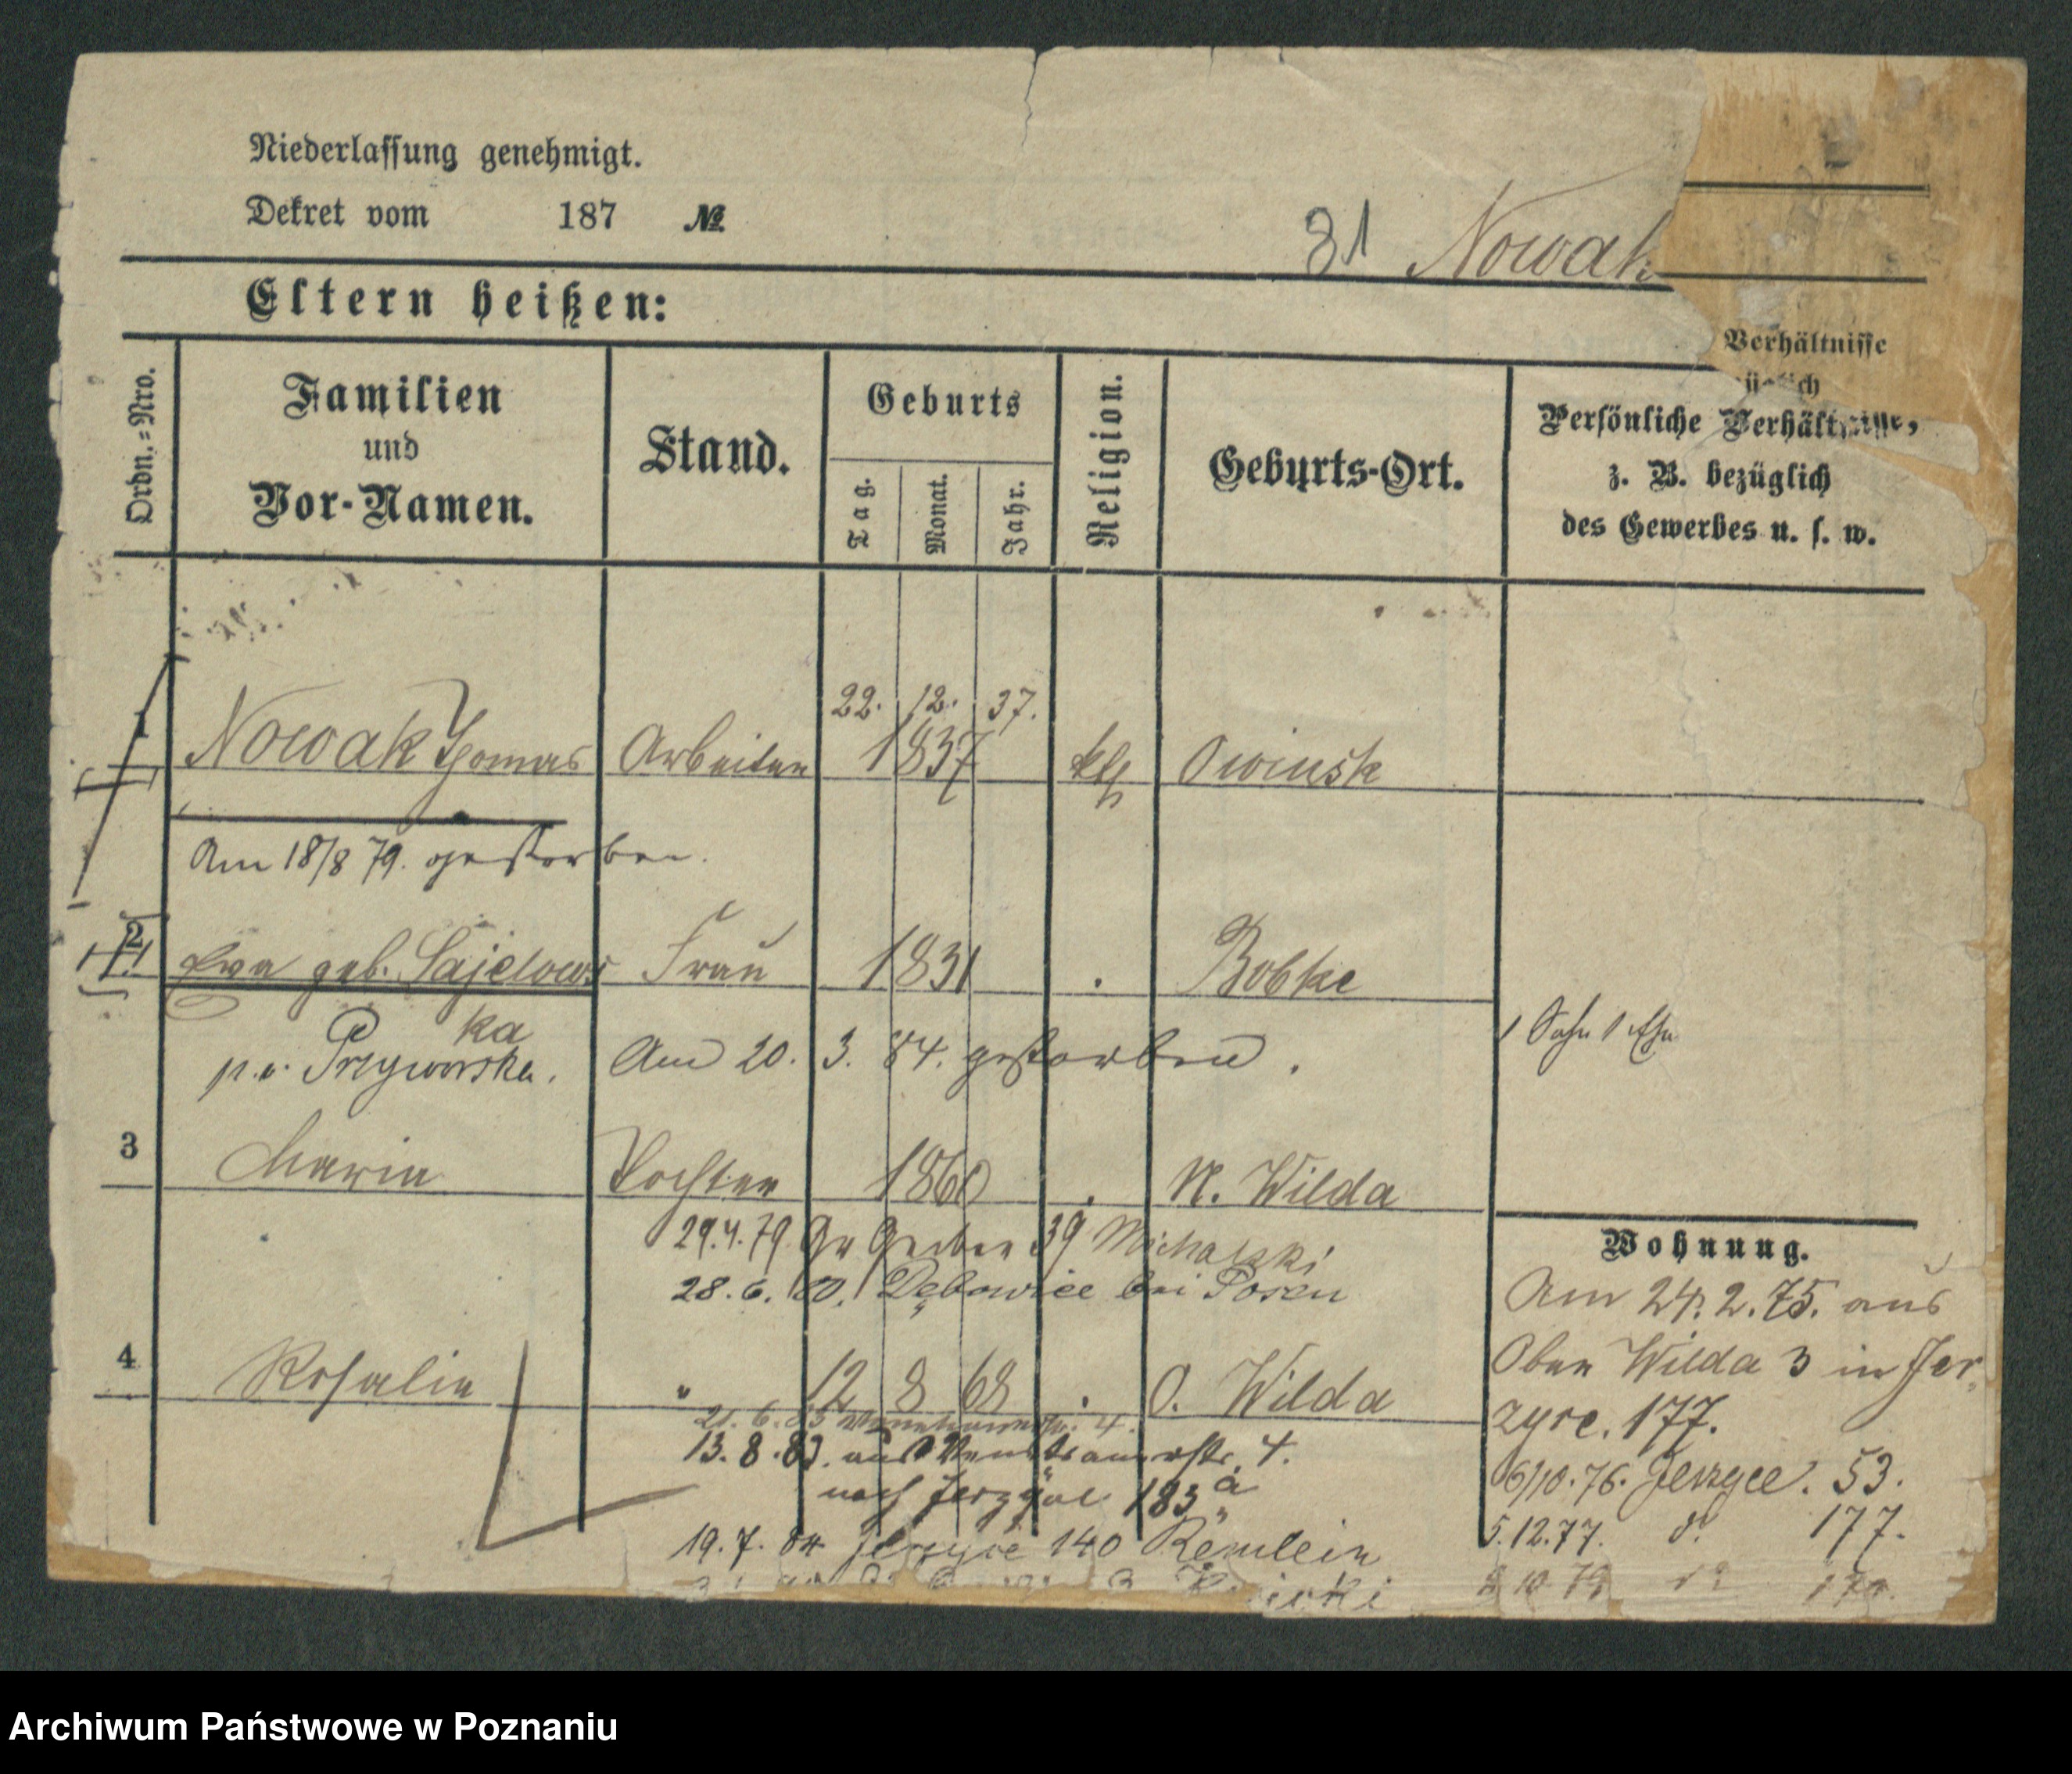 Niederlassung genehmigt.
Dekret vom 187 №
31 Nowak
Eltern heißen:
Verhältnisse
Ordn.=Nro.
Familien
und
Vor-Namen.
Stand.
Geburts
Tag.
Monat.
Jahr.
Religion.
Geburts-Ort.
Persönliche Verhältnisse,
z. B. bezüglich
des Gewerbes u. s. w.
22. 12. 37.
1 Nowak Thomas Arbeiter 1837 kth Owinsk
Am 18/8 79. gestorben.
2 Eva geb. Sajelows Frau 1831 . Bobke
ka
p. v. Przyworska. Am 20. 3. 84. gestorben.
1 Sohn
3 Maria Tochter 1860 . N. Wilda
29.4.79 Gr Gerber 39 Michalski
28.6.80. Dębowice bei Posen
4 Rosalie " 12 8 68 . O. Wilda
13.8.83. aus 4.
nach Jerzyce 183 a
19.7.84 Jerzyce 140 Remlein
Wohnung.
Am 24.2.75. aus
Ober Wilda 3 in Jer-
zyce. 177.
6/10.76. Jerzyce. 53.
5.12.77. do 177.
10 79 do
Archiwum Państwowe w Poznaniu